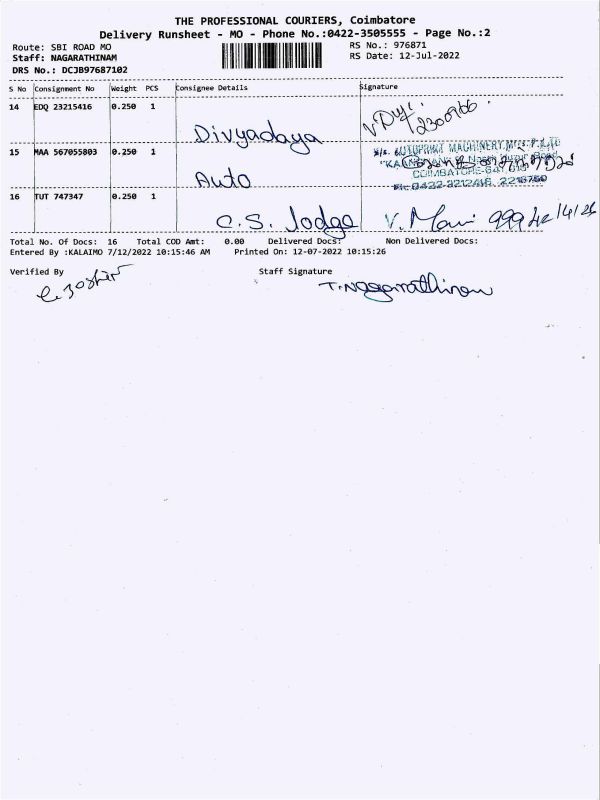 THE PROFESSIONAL COURIERS, Coimbatore
Delivery Runsheet - MO - Phone No.:0422-3505555 - Page No.:2
Route: SBI ROAD MO
Staff: NAGARATHINAM
DRS No.: DCJB97687102
RS No.: 976871
RS Date: 12-Jul-2022
S No Consignment No Weight PCS Consignee Details Signature
14 EDQ 23215416 0.250 1
Divyadaya
15 MAA 567055803 0.250 1
Auto
AUTOPRINT MACHINERY
COIMBATORE-641
0422-2212416, 2216750
16 TUT 747347 0.250 1
C.S. Jodge V. Mani
Total No. Of Docs: 16 Total COD Amt: 0.00 Delivered Docs: Non Delivered Docs:
Entered By :KALAIMO 7/12/2022 10:15:46 AM Printed On: 12-07-2022 10:15:26
Verified By Staff Signature
T. Nagarathinam